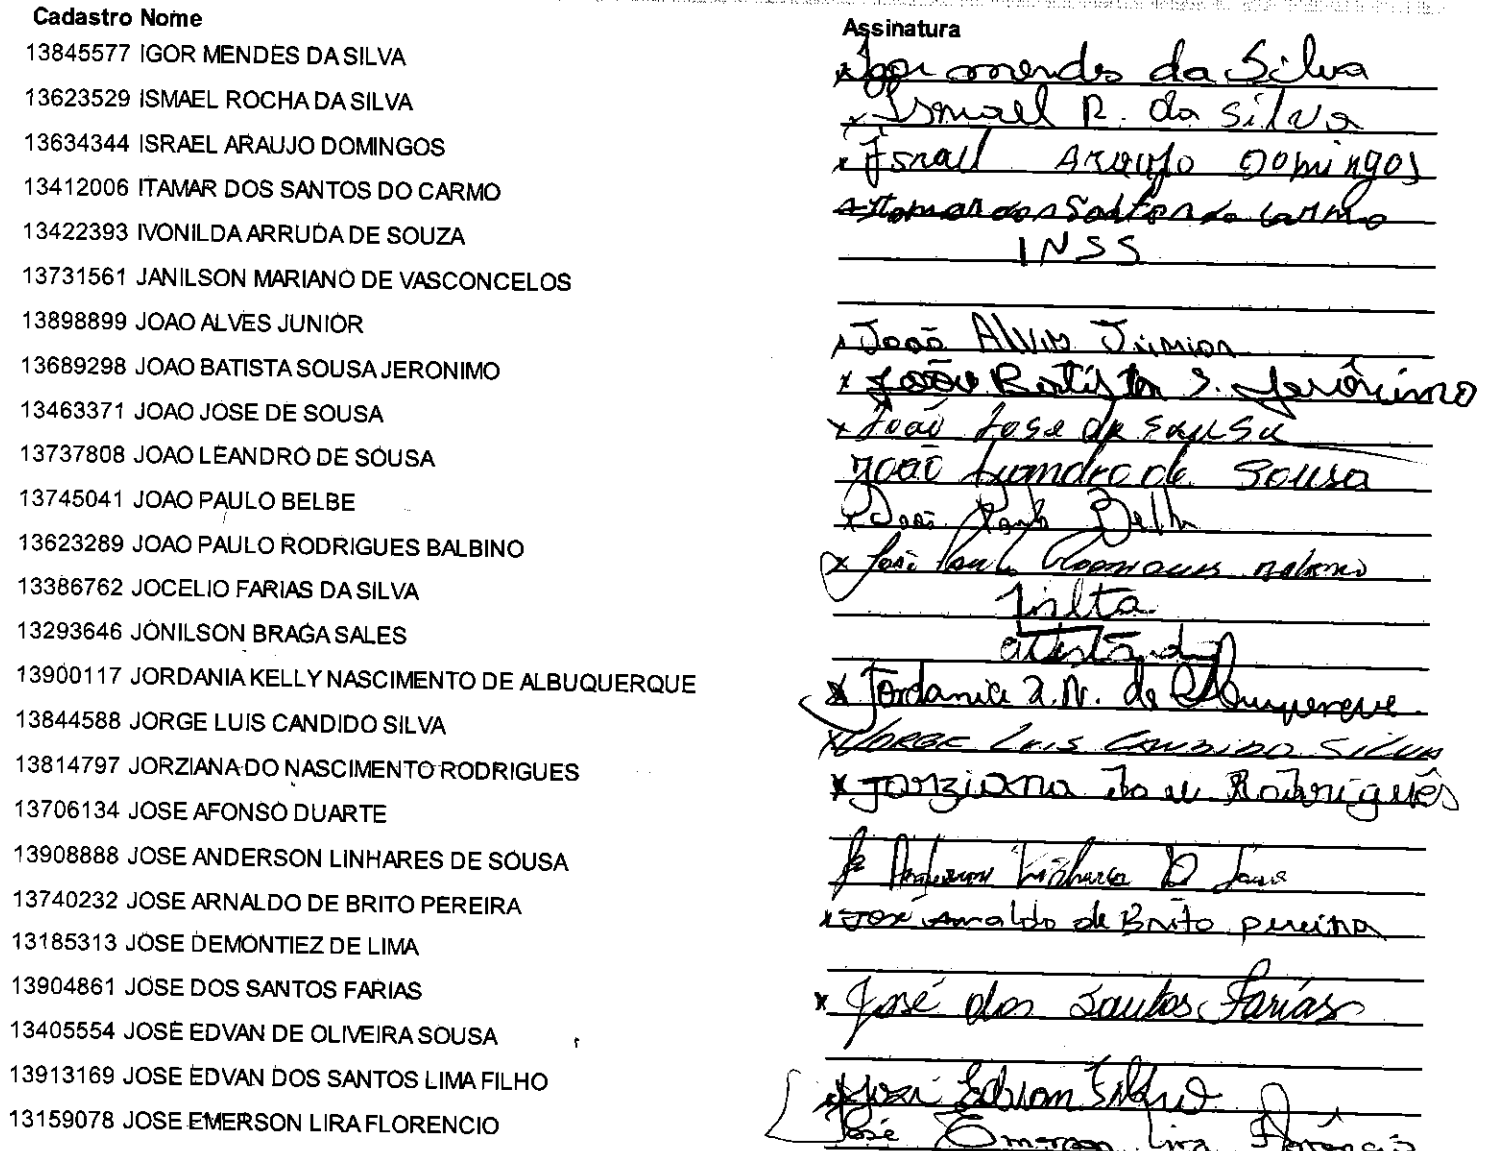 Cadastro Nome Assinatura
13845577 IGOR MENDES DA SILVA Igor mendes da Silva
13623529 ISMAEL ROCHA DA SILVA x Ismael R. da Silva
13634344 ISRAEL ARAUJO DOMINGOS x Israel Araujo Domingos
13412006 ITAMAR DOS SANTOS DO CARMO x Itamar dos Santos do Carmo
13422393 IVONILDA ARRUDA DE SOUZA INSS
13731561 JANILSON MARIANO DE VASCONCELOS
13898899 JOAO ALVES JUNIOR João Alves Júnior
13689298 JOAO BATISTA SOUSA JERONIMO x João Batista S. Jerônimo
13463371 JOAO JOSE DE SOUSA x João Jose de Sousa
13737808 JOAO LEANDRO DE SOUSA João Leandro de Sousa
13745041 JOAO PAULO BELBE x João Paulo
13623289 JOAO PAULO RODRIGUES BALBINO x João Paulo
13386762 JOCELIO FARIAS DA SILVA Falta
13293646 JONILSON BRAGA SALES
13900117 JORDANIA KELLY NASCIMENTO DE ALBUQUERQUE x Jordania K.N. de Albuquerque.
13844588 JORGE LUIS CANDIDO SILVA x JORGE LUIS CANDIDO SILVA
13814797 JORZIANA DO NASCIMENTO RODRIGUES x Jorziana do N Rodriguês
13706134 JOSE AFONSO DUARTE
13908888 JOSE ANDERSON LINHARES DE SOUSA Anderson Linhares D Sousa
13740232 JOSE ARNALDO DE BRITO PEREIRA x José Arnaldo de Brito pereira
13185313 JOSE DEMONTIEZ DE LIMA
13904861 JOSE DOS SANTOS FARIAS x José dos Santos Farias
13405554 JOSE EDVAN DE OLIVEIRA SOUSA
13913169 JOSE EDVAN DOS SANTOS LIMA FILHO x José Edvan Filho
13159078 JOSE EMERSON LIRA FLORENCIO José Emerson Lira Florêncio